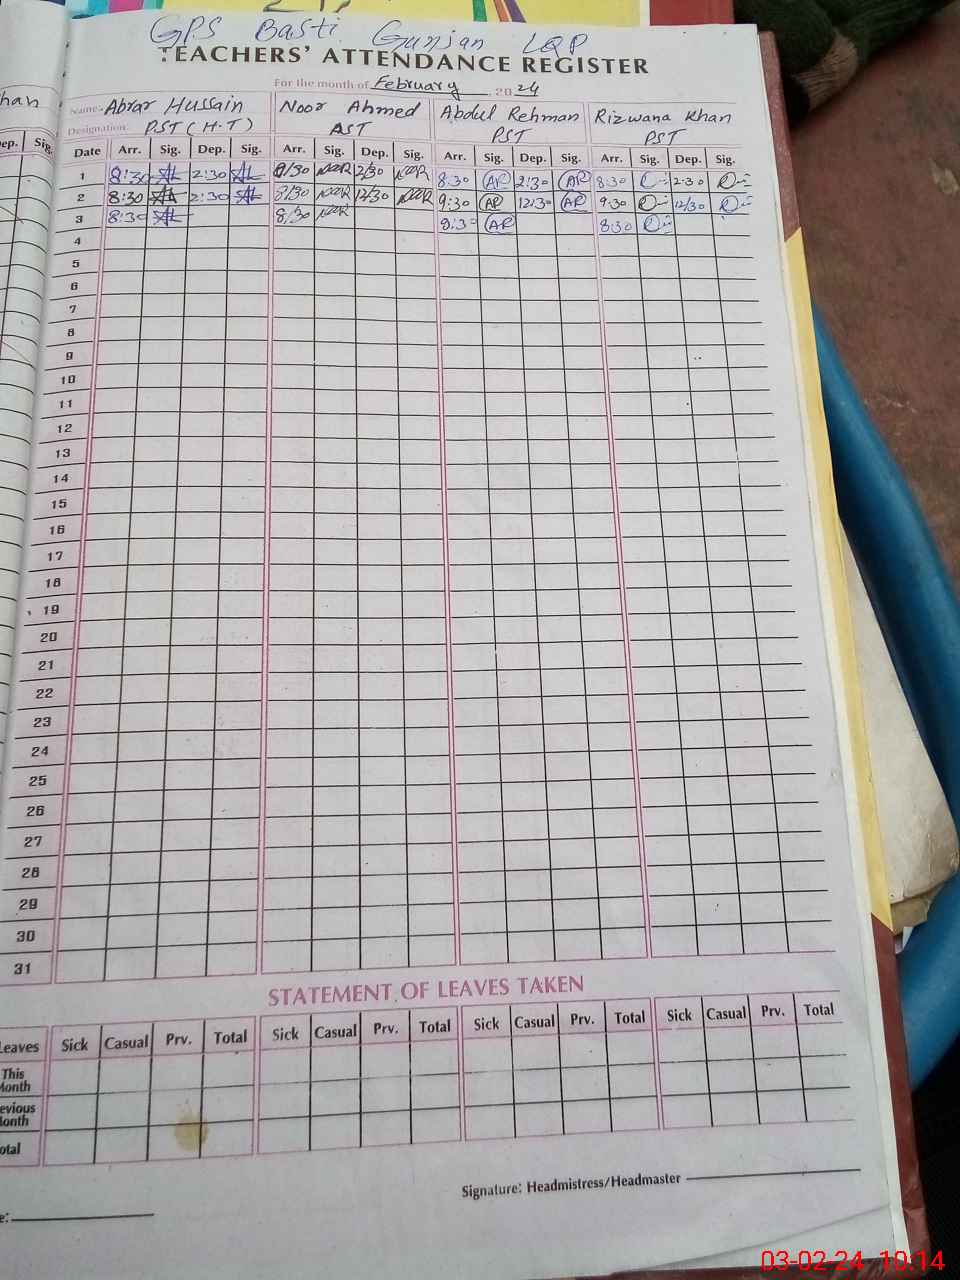 GPS Basti Gunjan LQP
TEACHERS' ATTENDANCE REGISTER
For the month of February 2024
han
Name: Abrar Hussain Noor Ahmed Abdul Rehman Rizwana Khan
Designation: PST (H.T) PST PST
ep. Sig. Date Arr. Sig. Dep. Sig. Arr. Sig. Dep. Sig. Arr. Sig. Dep. Sig. Arr. Sig. Dep. Sig.
1 8:30 2:30 8/30 NOOR 2/30 NOOR 8:30 AR 2:30 AR 8:30 2:30
2 8:30 2:30 8/30 NOOR 12/30 NOOR 9:30 AR 12:30 AR 9:30 12/30
3 8:30 8/30 NOOR 8:30 AR 8:30
4
5
6
7
8
9
10
11
12
13
14
15
16
17
18
19
20
21
22
23
24
25
26
27
28
29
30
31
STATEMENT OF LEAVES TAKEN
Leaves Sick Casual Prv. Total Sick Casual Prv. Total Sick Casual Prv. Total Sick Casual Prv. Total
This
Month
evious
Month
otal
Signature: Headmistress/Headmaster
e:
03-02-24 10:14